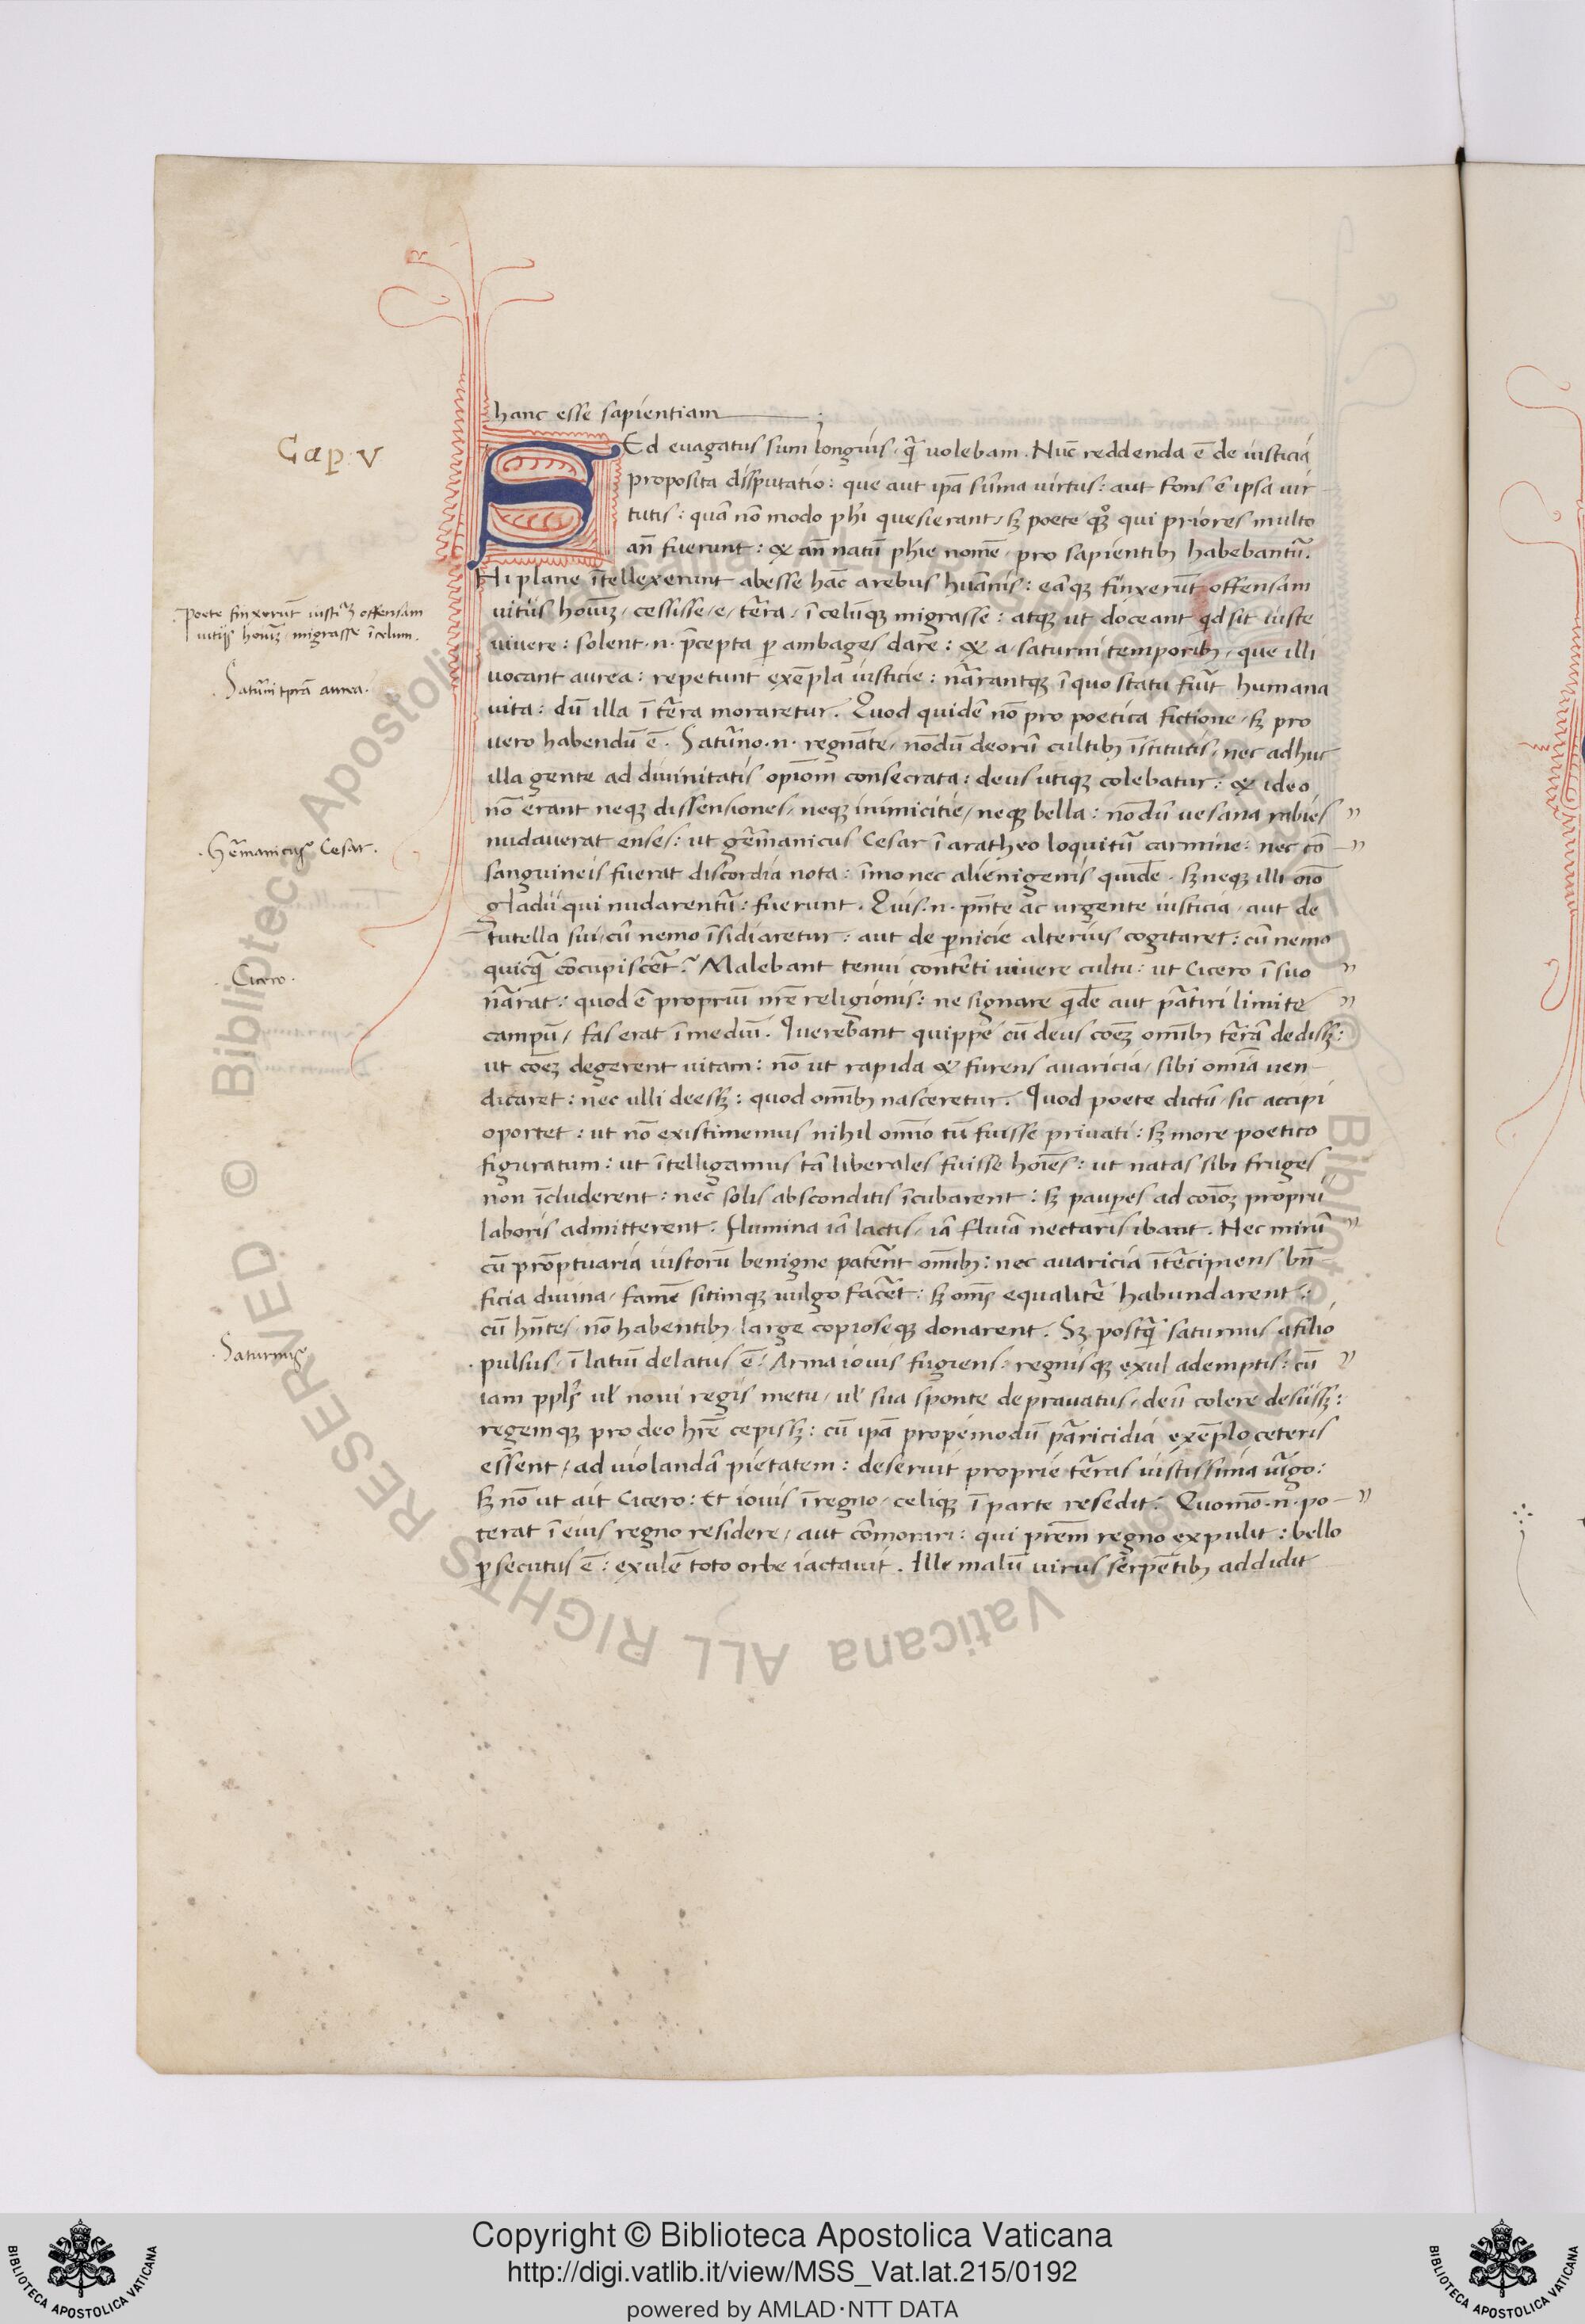 hanc esse sapientiam ———— ;
Cap. V
SEd evagatus sum longius, q̃ volebam. Nũc reddenda ẽ de iusticia
proposita disputatio: que aut ip̃a sum̃a virtus: aut fons ẽ ipsa vir
tutis: quã nõ modo phĩ quesierant, sꝫ poete qꝫ qui priores multo
añ fuerunt: & añ natũ phĩe nomẽ, pro sapientibꝫ habebantũ.
Hi plane ĩtellexerunt abesse hãc arebus huãnis: eãqꝫ finxerũt offensam
Poete finxerũt iustiꝫ offensam
vitijs hoĩuꝫ, migrasse ĩ celum.
vitiis hoĩuꝫ, cessisse, e, tẽra, ĩ celũqꝫ migrasse: atqꝫ ut doceant qd sit iuste
vivere: solent .n. p̃cepta ꝑ ambages dare: & a, saturni temporibꝫ, que illi
Saturni tp̃ra aurea.
vocant aurea: repetunt exẽpla iusticie: nãrantqꝫ ĩ quo statu fũit humana
vita: dũ illa ĩ tẽra moraretur. Quod quidẽ nõ pro poetica fictione, sꝫ pro
vero habendũ ẽ. Satũno .n. regnãte, nõdũ deorũ cultibꝫ ĩstitutis, nec adhuc
illa gente ad divinitatis opĩom consecrata: deus utiqꝫ colebatur: & ideo
nõ erant neqꝫ dissensiones, neqꝫ inimicitie, neqꝫ bella: nõdũ vesana rabies
Gẽmanicus Cesar.
nudaverat enses: ut gẽmanicus Cesar ĩ aratheo loquitũ carmine: nec cõ
sanguineis fuerat discordia nota: ĩmo nec alienigenis quidẽ. sꝫ neqꝫ illi oĩo
gladii qui nudarentũ: fuerunt. Quis .n. pñte ac urgente iusticia, aut de
tutella sui, cũ nemo ĩsidiaretur: aut de ꝑnicie alterius cogitaret: cũ nemo
Cicero.
quicq̃ cõcupiscẽt? Malebant tenui contẽti vivere cultu: ut Cicero ĩ suo
nãrat: quod ẽ propriũ nr̃e religionis: ne signare qdẽ aut pãtiri limite
campũ, fas erat ĩ mediũ. Querebãnt quippe cũ deus coẽꝫ omĩbꝫ tẽrã dedissꝫ:
ut coẽꝫ degerent vitam: nõ ut rapida & furens avaricia, sibi omĩa ven
dicaret: nec ulli deessꝫ: quod omĩbꝫ nasceretur. Quod poete dictũ, sic accipi
oportet: ut nõ existimemus nihil omĩo tũ fuisse privati: sꝫ more poetico
figuratum: ut ĩtelligamus tã liberales fuisse hoĩes: ut natas sibi fruges
non ĩcluderent: nec solis absconditis ĩcubarent: sꝫ pauꝑes ad coĩoꝫ proprii
laboris admitterent. Flumina iã lactis, iã fluia nectaris ibant. Nec mirũ
cũ prõptuaria iustorũ benigne patẽnt omĩbꝫ: nec avaricia ĩtẽcipiens bñ
ficia divina, famẽ sitimqꝫ vulgo facẽt: sꝫ om̃s equalitẽ habundarent:
Saturnus
cũ hñtes, nõ habentibꝫ large copioseqꝫ donarent. Sꝫ postq̃ saturnus afilio
pulsus, ĩ latiũ delatus ẽ: Arma iovis fugiens: regnisqꝫ exul ademptis: cũ
iam ppl̃s ul̃ novi regis metu, ul̃ sua sponte depravatus, deũ colere desiissꝫ:
regemqꝫ pro deo hr̃e cepissꝫ: cũ ip̃a propemodũ pãricidia exẽplo ceteris
essent, ad violandã pietatem: deseruit proprie tẽras iustissima vĩgo:
sꝫ nõ ut ait Cicero: Et iovis ĩ regno, celiqꝫ ĩ parte resedit. Quomõ .n. po
terat ĩ eius regno residere, aut cõmorari: qui prẽm regno expulit: bello
ꝑsecutus ẽ: exulẽ toto orbe iactavit. Ille malũ virus serpẽtibꝫ addidit
© Biblioteca Apostolica Vaticana ALL RIGHTS RESERVED
Copyright © Biblioteca Apostolica Vaticana
http://digi.vatlib.it/view/MSS_Vat.lat.215/0192
powered by AMLAD·NTT DATA
BIBLIOTECA APOSTOLICA VATICANA
BIBLIOTECA APOSTOLICA VATICANA